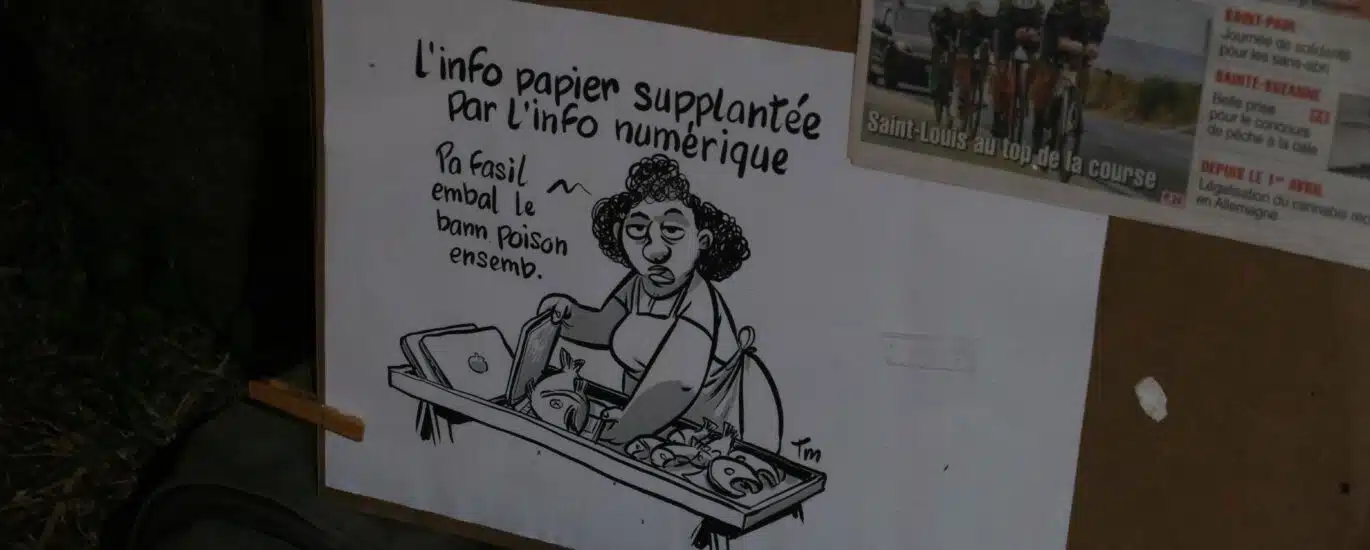 L'info papier supplantée
par l'info numérique
Pa fasil
embal le
bann poison
ensemb.
Tm
Saint-Louis au top de la course
P.24
SAINT-PAUL
Journée de solidarité
pour les sans-abri
SAINTE-SUZANNE
Belle prise
pour le concours
de pêche à la cale
DEPUIS LE 1er AVRIL
Légalisation du cannabis
en Allemagne